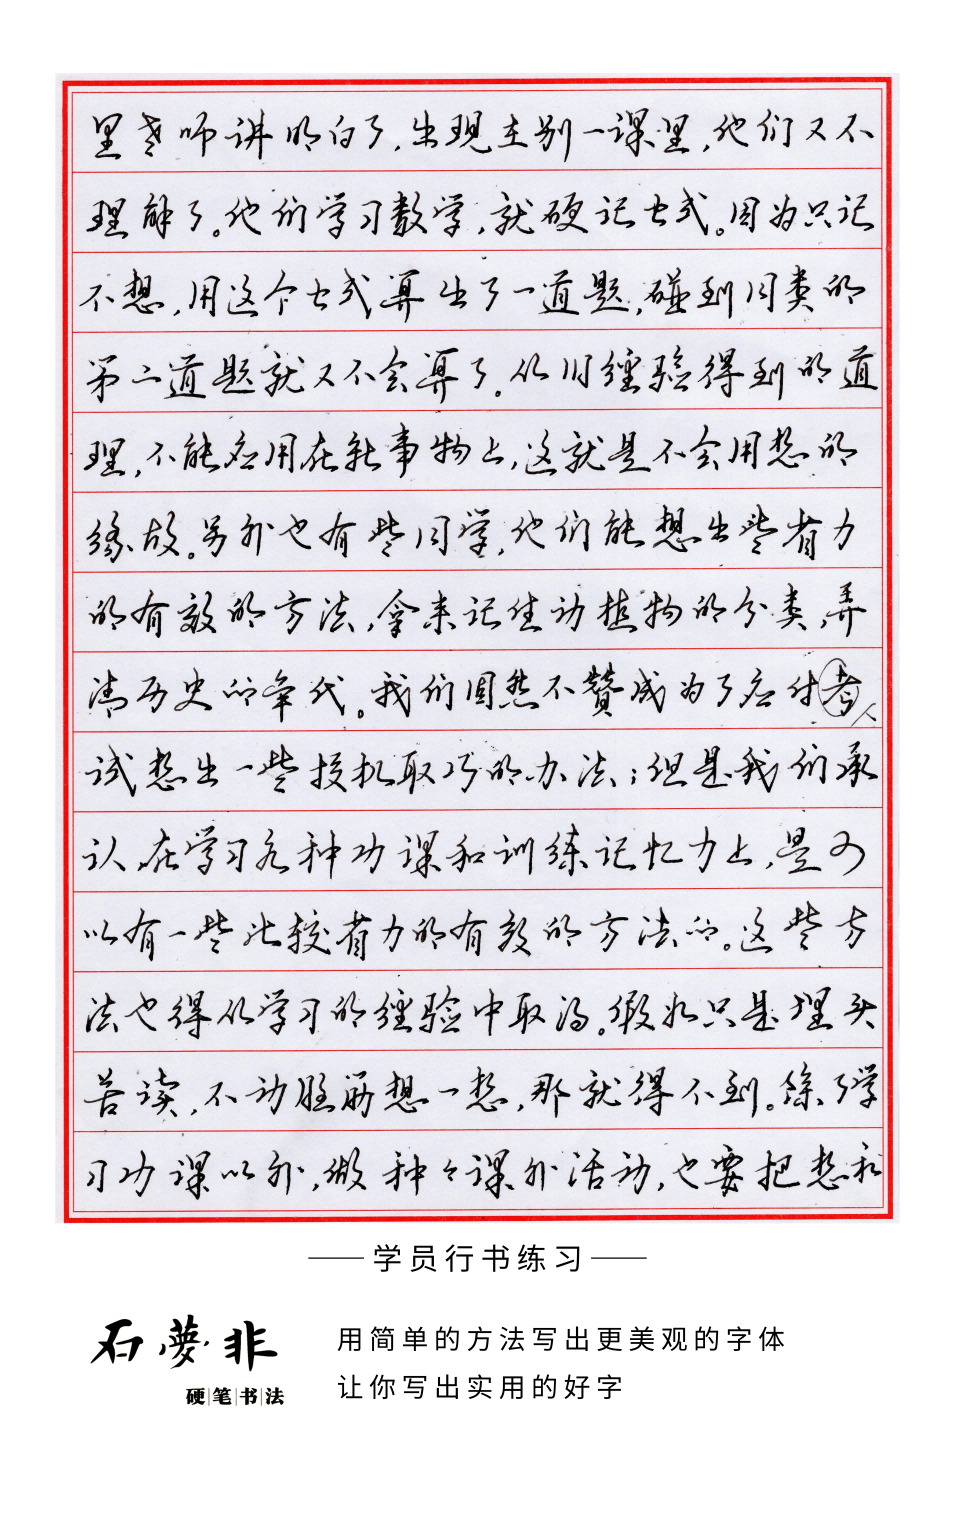 里老师讲明白了,出现在别一课里,他们又不
理解了。他们学习数学,就硬记公式。因为只记
不想,用这个公式算出了一道题,碰到同类的
第二道题就又不会算了。从旧经验得到的道
理,不能应用在新事物上,这就是不会用想的
缘故。另外也有些同学,他们能想出些省力
的有效的方法,拿来记住动植物的分类,弄
清历史的年代。我们固然不赞成为了应付考人
试想出一些投机取巧的办法;但是我们承
认,在学习各种功课和训练记忆力上,是可
以有一些比较省力的有效的方法的。这些方
法也得从学习的经验中取得。假如只是埋头
苦读,不动脑筋想一想,那就得不到。除了学
习功课以外,做种々课外活动,也要把想和
学员行书练习
石夢非
硬笔书法
用简单的方法写出更美观的字体
让你写出实用的好字